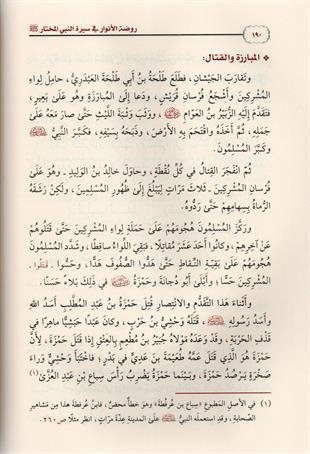 ١٩٠
روضة الأنوار في سيرة النبي المختار ﷺ
❖ المبارزة والقتال:
وَتَقَارَبَ الْجَيْشَانِ، فَطَلَعَ طَلْحَةُ بْنُ أَبِي طَلْحَةَ الْعَبْدَرِيُّ، حَامِلُ لِوَاءِ
الْمُشْرِكِينَ وَأَشْجَعُ فُرْسَانِ قُرَيْشٍ، وَدَعَا إِلَى الْمُبَارَزَةِ وَهُوَ عَلَى بَعِيرٍ،
فَتَقَدَّمَ إِلَيْهِ الزُّبَيْرُ بْنُ الْعَوَّامِ، وَوَثَبَ وَثْبَةَ اللَّيْثِ حَتَّى صَارَ مَعَهُ عَلَى
جَمَلِهِ، ثُمَّ أَخَذَهُ وَاقْتَحَمَ بِهِ الْأَرْضَ، وَذَبَحَهُ بِسَيْفِهِ، فَكَبَّرَ النَّبِيُّ ﷺ
وَكَبَّرَ الْمُسْلِمُونَ.
ثُمَّ انْفَجَرَ الْقِتَالُ فِي كُلِّ نُقْطَةٍ، وَحَاوَلَ خَالِدُ بْنُ الْوَلِيدِ ـ وَهُوَ عَلَى
فُرْسَانِ الْمُشْرِكِينَ ـ ثَلَاثَ مَرَّاتٍ لِيَبْلُغَ إِلَى ظُهُورِ الْمُسْلِمِينَ، وَلَكِنْ رَشَقَهُ
الرُّمَاةُ بِسِهَامِهِمْ حَتَّى رَدُّوهُ.
وَرَكَّزَ الْمُسْلِمُونَ هُجُومَهُمْ عَلَى حَمَلَةِ لِوَاءِ الْمُشْرِكِينَ حَتَّى قَتَلُوهُمْ
عَنْ آخِرِهِمْ، وَكَانُوا أَحَدَ عَشَرَ مُقَاتِلًا، فَبَقِيَ اللِّوَاءُ سَاقِطًا، وَشَدَّدَ الْمُسْلِمُونَ
هُجُومَهُمْ عَلَى بَقِيَّةِ النِّقَاطِ حَتَّى هَدُّوا الصُّفُوفَ هَدًّا، وَحَسُّوا ـ قَتَلُوا ـ
الْمُشْرِكِينَ حَسًّا؛ وَأَبْلَى أَبُو دُجَانَةَ وَحَمْزَةُ فِي ذَلِكَ بَلَاءً حَسَنًا.
وَأَثْنَاءَ هَذَا التَّقَدُّمِ وَالِانْتِصَارِ قُتِلَ حَمْزَةُ بْنُ عَبْدِ الْمُطَّلِبِ أَسَدُ اللَّهِ
وَأَسَدُ رَسُولِهِ، قَتَلَهُ وَحْشِيُّ بْنُ حَرْبٍ، وَكَانَ عَبْدًا حَبَشِيًّا مَاهِرًا فِي
قَذْفِ الْحَرْبَةِ، وَقَدْ وَعَدَهُ مَوْلَاهُ جُبَيْرُ بْنُ مُطْعِمٍ بِالْعِتْقِ إِذَا قَتَلَ حَمْزَةَ، لِأَنَّ
حَمْزَةَ هُوَ الَّذِي قَتَلَ عَمَّهُ طُعَيْمَةَ بْنَ عَدِيٍّ فِي بَدْرٍ؛ فَاخْتَبَأَ وَحْشِيٌّ وَرَاءَ
صَخْرَةٍ يَرْصُدُ حَمْزَةَ، وَبَيْنَمَا حَمْزَةُ يَضْرِبُ رَأْسَ سِبَاعِ بْنِ عَبْدِ الْعُزَّى(١)
(١) في الأصل المطبوع «سباع بن عرفطة» وهو خطأ محض، فابن عرفطة هذا من مشاهير
الصحابة، وقد استعمله النبي ﷺ على المدينة عدّة مرات، انظر مثلًا ص٢٦٠.